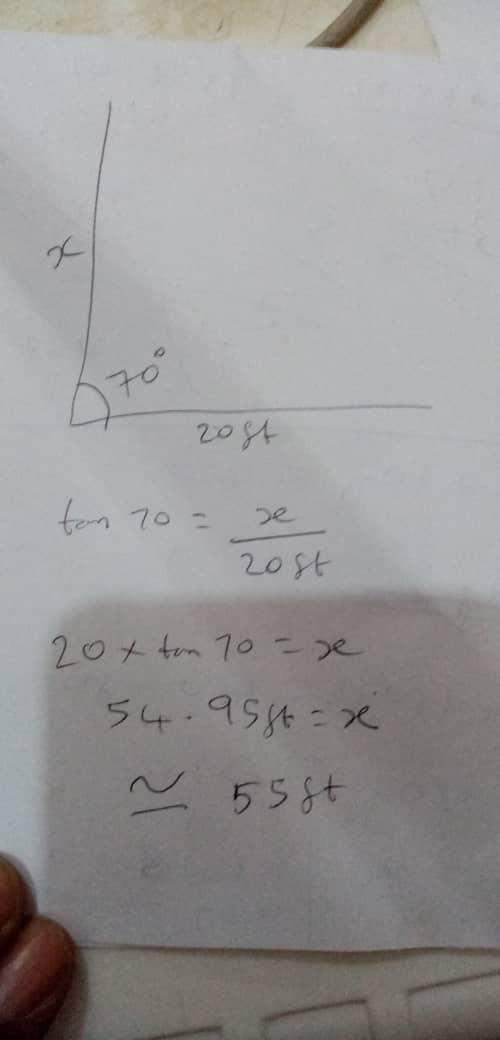 x
70°
20ft
tan 70 = x / 20ft
20 × tan 70 = x
54.95ft = x
≃ 55ft